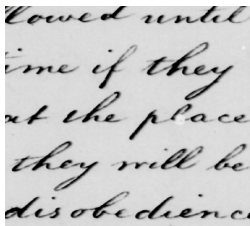 lowed until
time if they
at the place
they will be
disobedienc